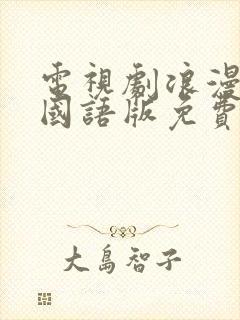 電視劇浪漫
國語版免費
大島智子